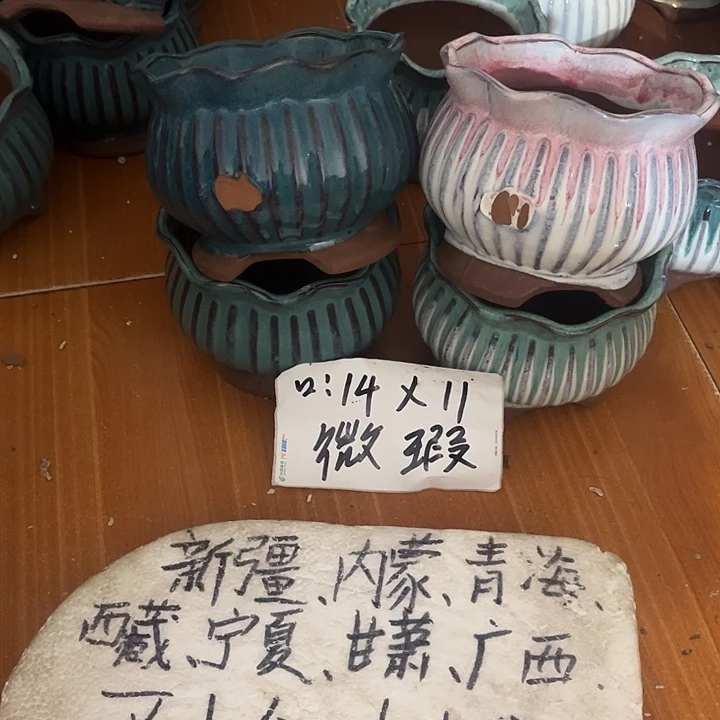 口:14×11
微瑕
新疆、内蒙、青海、
西藏、宁夏、甘肃、广西